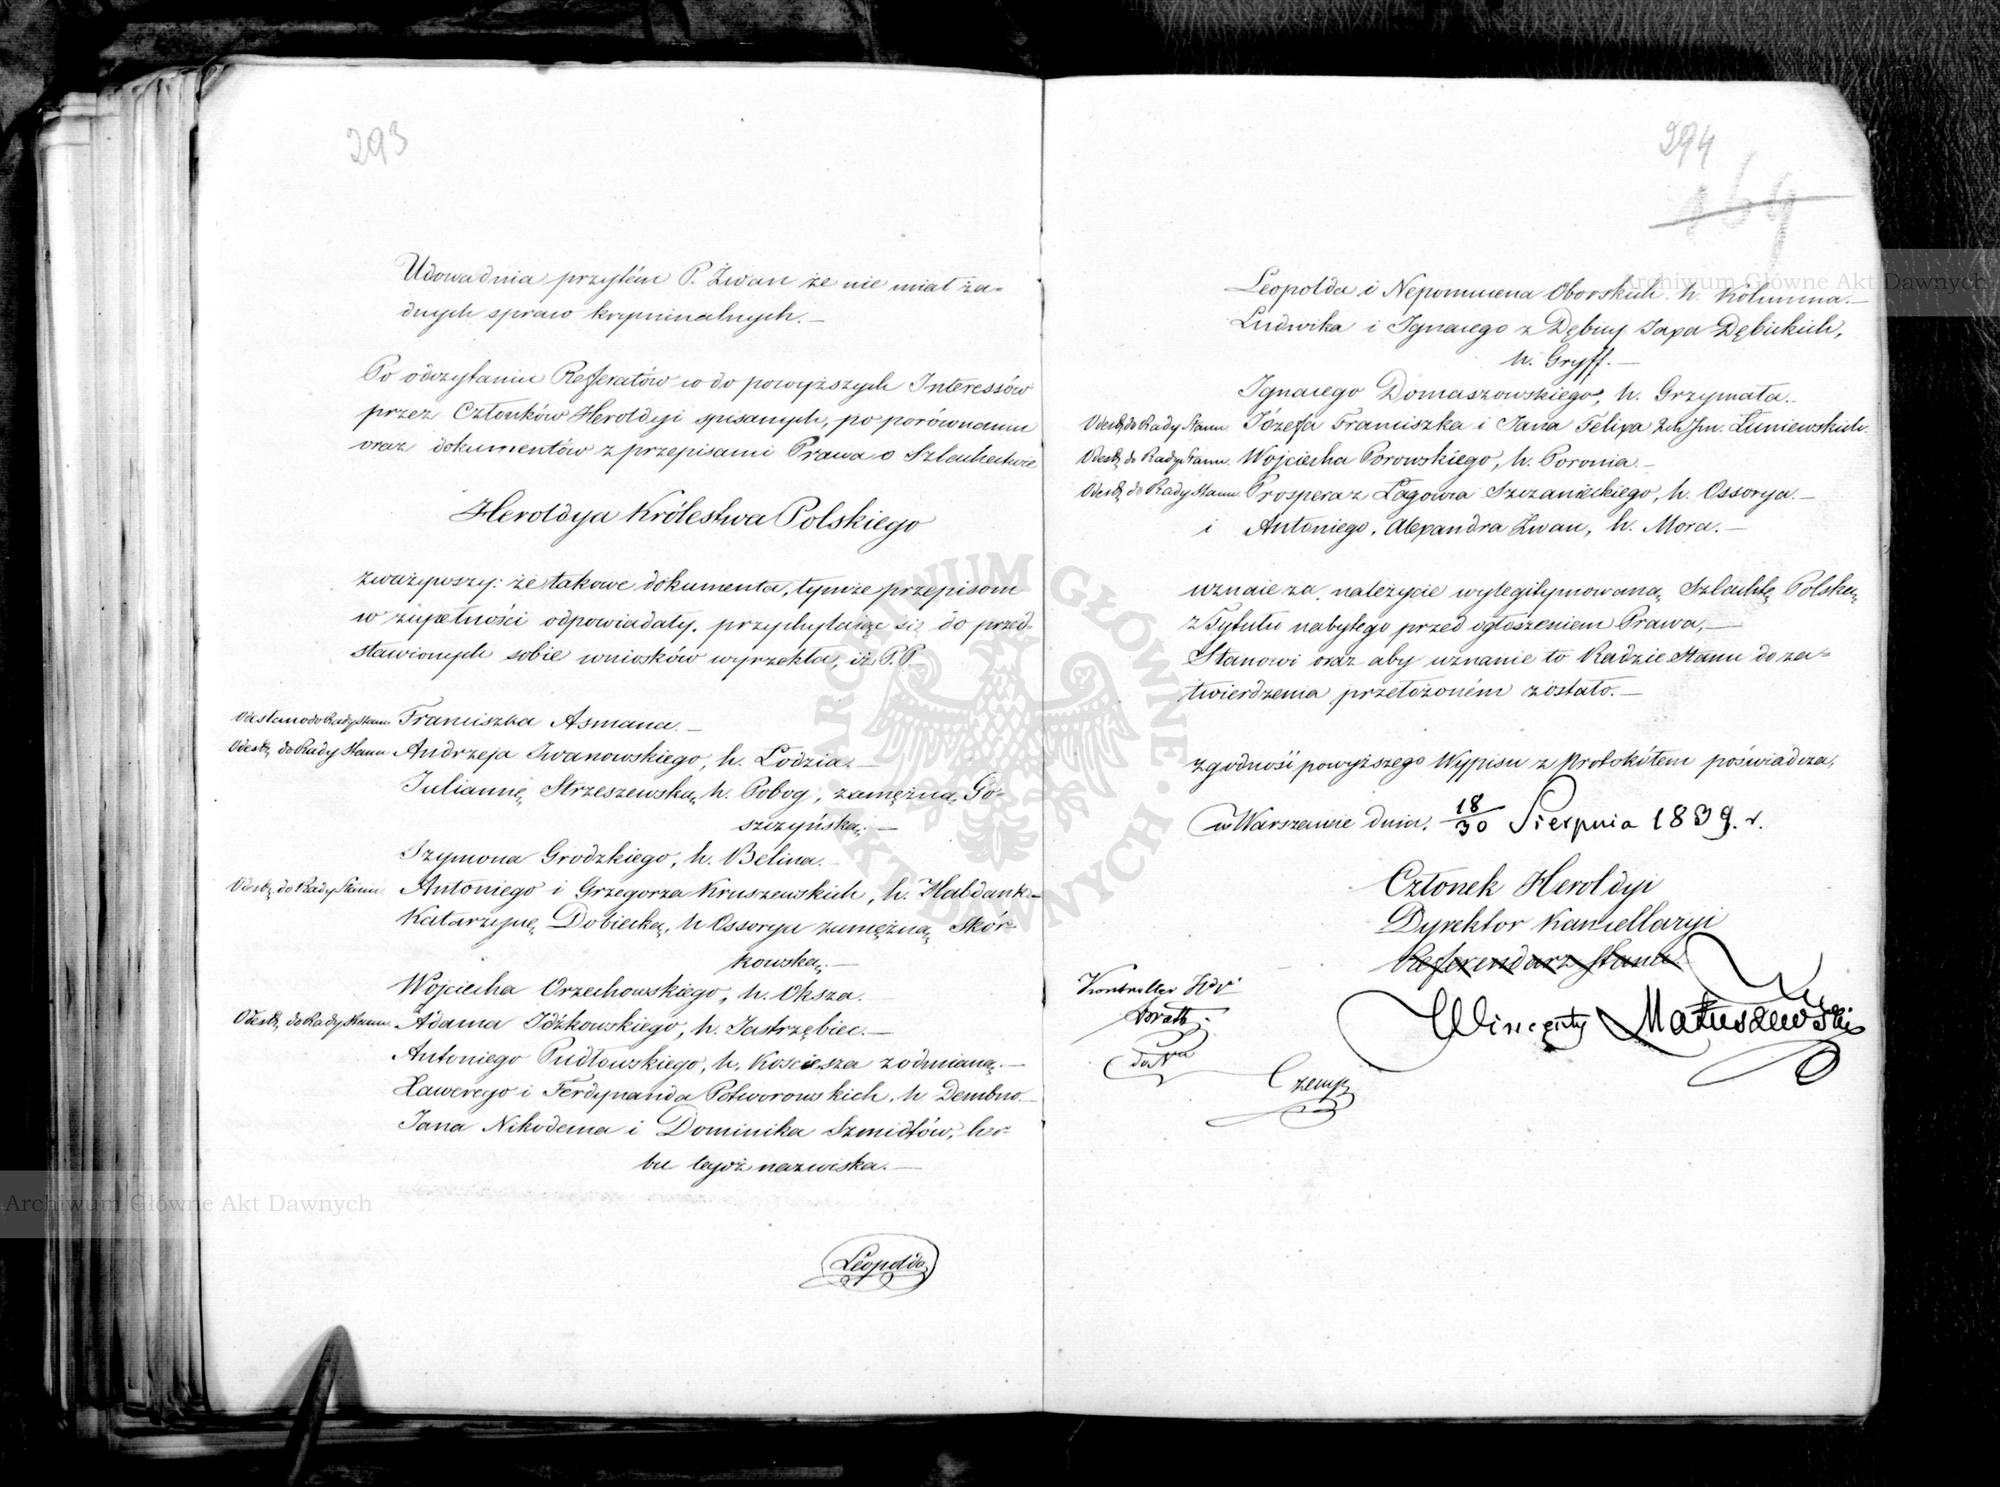 293
Udowadnia przytém P. Żwan że nie miał ża-
dnych spraw kryminalnych. —
Po odczytaniu Referatów co do powyższych Interessów
przez Członków Heroldyi spisanych, po porównaniu
oraz dokumentów z przepisami Prawa o Szlachectwie
Heroldya Królestwa Polskiego
zważywszy: że takowe dokumenta, tymże przepisom
w zupełności odpowiadały, przychylając się do przed-
stawionych sobie wniosków wyrzekła, iż P.P.
Odesłano do Rady Stanu Franciszka Asmana. —
Odesł. do Rady Stanu Andrzeja Iwanowskiego, h. Lodzia. —
Juliannę Strzeszewską, h. Pobog, zamężną Go-
szczyńską. —
Szymona Grodzkiego, h. Belina. —
Odesł. do Rady Stanu Antoniego i Grzegorza Kruszewskich, h. Habdank. —
Katarzynę Dobiecką, h Ossorya zamężną Skór-
kowską. —
Wojciecha Orzechowskiego, h. Oksza. —
Odesł. do Rady Stanu Adama Idźkowskiego, h. Jastrzębiec. —
Antoniego Pudłowskiego, h. Kościesza z odmianą. —
Xawerego i Ferdynanda Potworowskich, h Dembno. —
Jana Nikodema i Dominika Szmidtów, her-
bu tegoż nazwiska. —
Leopolda
294
169
Leopolda i Nepomucena Oborskich h. Kolumna. —
Ludwika i Ignacego z Dębiny Japa Dębickich,
h. Gryff. —
Ignacego Domaszowskiego, h. Grzymała. —
Odesł. do Rady Stanu Józefa Franciszka i Jana Felixa Łuniewskich
Odesł. do Rady Stanu Wojciecha Porowskiego, h. Poronia. —
Odesł. do Rady Stanu Prospera z Łagowa Szczanieckiego, h. Ossorya. —
i Antoniego, Alexandra Żwan, h. Mora. —
uznaie za należycie wylegitymowaną Szlachtę Polską
z Tytułu nabytego przed ogłoszeniem Prawa, —
Stanowi oraz aby uznanie to Radzie Stanu do za-
twierdzenia przełożoném zostało. —
Zgodność powyższego Wypisu z Protokółem poświadcza,
w Warszawie dnia 18/30 Sierpnia 1839. r.
Członek Heroldyi
Dyrektor Kancellaryi
Referendarz Stanu
Wincenty Matuszewski
Kontroller
Archiwum Główne Akt Dawnych
Archiwum Główne Akt Dawnych
ARCHIWUM GŁÓWNE AKT DAWNYCH